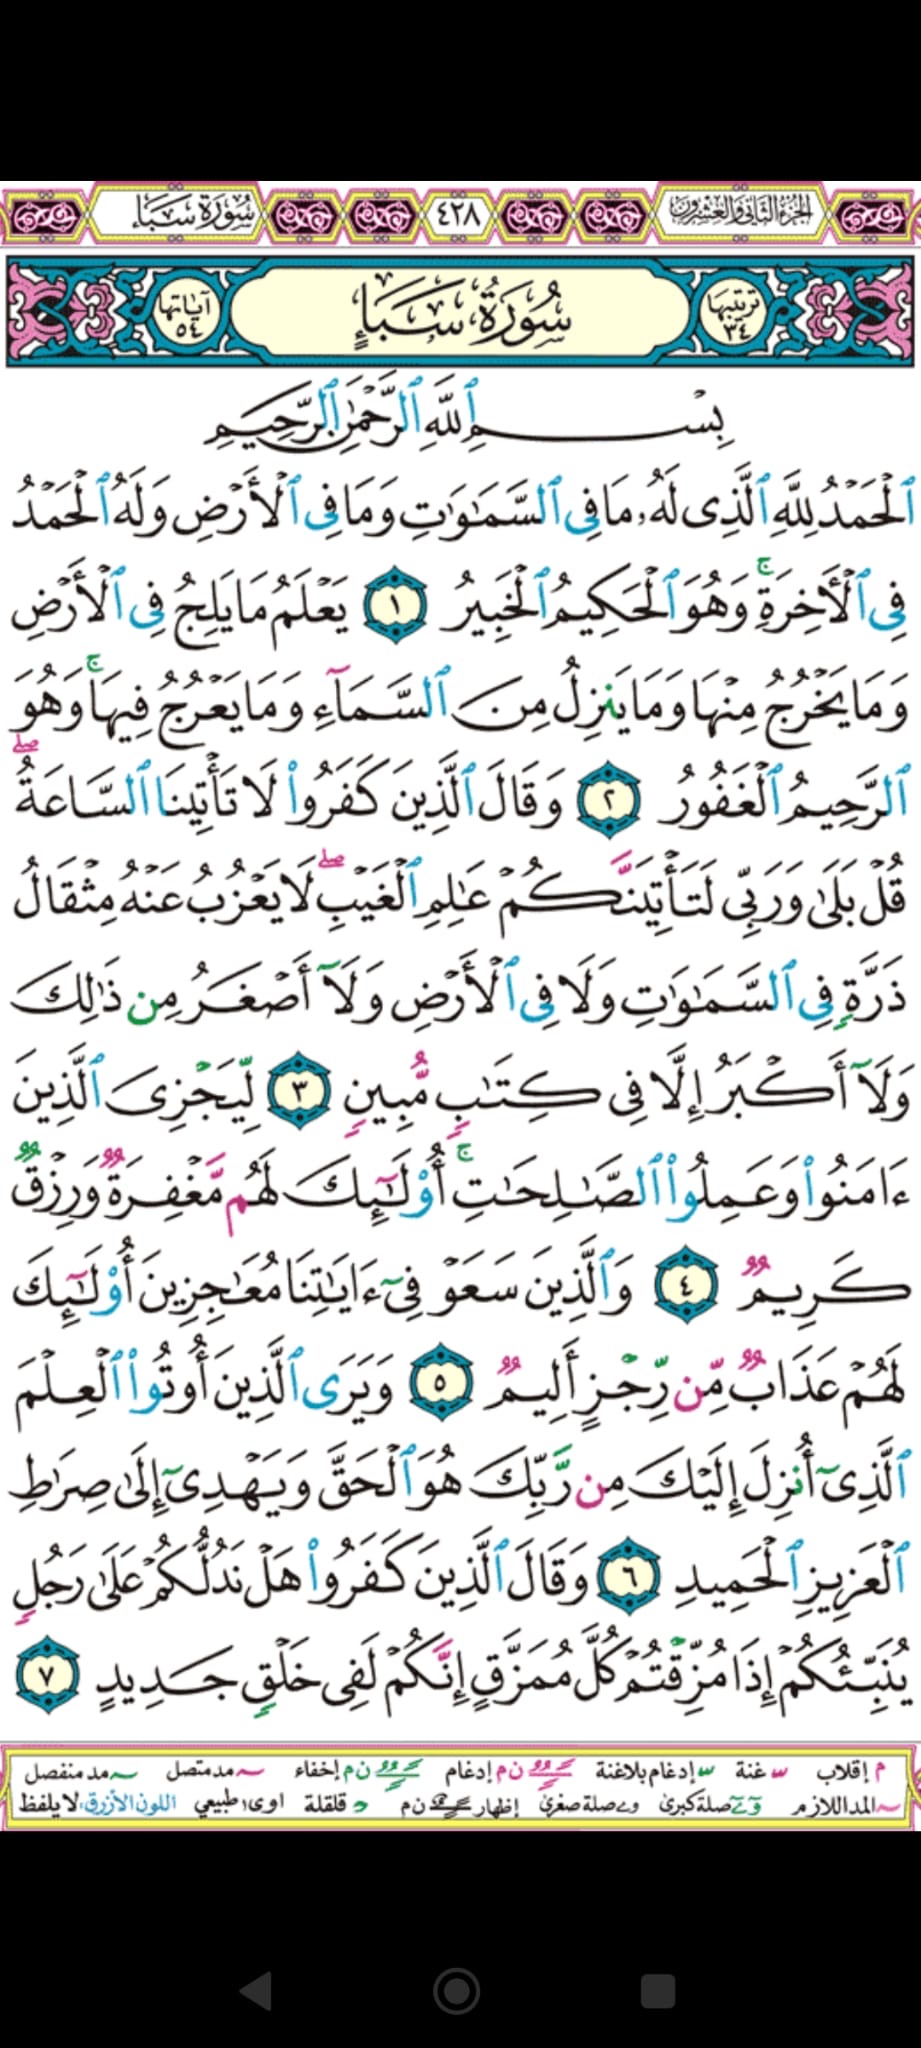 الجزء الثاني والعشرون
٤٢٨
سُورَةُ سَبَإٍ
ترتيبها ٣٤
سُورَةُ سَبَإٍ
آياتها ٥٤
بِسْمِ ٱللَّهِ ٱلرَّحْمَٰنِ ٱلرَّحِيمِ
ٱلْحَمْدُ لِلَّهِ ٱلَّذِى لَهُۥ مَا فِى ٱلسَّمَٰوَٰتِ وَمَا فِى ٱلْأَرْضِ وَلَهُ ٱلْحَمْدُ
فِى ٱلْأَخِرَةِۚ وَهُوَ ٱلْحَكِيمُ ٱلْخَبِيرُ ١ يَعْلَمُ مَا يَلِجُ فِى ٱلْأَرْضِ
وَمَا يَخْرُجُ مِنْهَا وَمَا يَنزِلُ مِنَ ٱلسَّمَآءِ وَمَا يَعْرُجُ فِيهَاۚ وَهُوَ
ٱلرَّحِيمُ ٱلْغَفُورُ ٢ وَقَالَ ٱلَّذِينَ كَفَرُوا۟ لَا تَأْتِينَا ٱلسَّاعَةُۖ
قُلْ بَلَىٰ وَرَبِّى لَتَأْتِيَنَّكُمْ عَٰلِمِ ٱلْغَيْبِۖ لَا يَعْزُبُ عَنْهُ مِثْقَالُ
ذَرَّةٍ فِى ٱلسَّمَٰوَٰتِ وَلَا فِى ٱلْأَرْضِ وَلَآ أَصْغَرُ مِن ذَٰلِكَ
وَلَآ أَكْبَرُ إِلَّا فِى كِتَٰبٍ مُّبِينٍ ٣ لِّيَجْزِىَ ٱلَّذِينَ
ءَامَنُوا۟ وَعَمِلُوا۟ ٱلصَّٰلِحَٰتِۚ أُو۟لَٰٓئِكَ لَهُم مَّغْفِرَةٌ وَرِزْقٌ
كَرِيمٌ ٤ وَٱلَّذِينَ سَعَوْ فِىٓ ءَايَٰتِنَا مُعَٰجِزِينَ أُو۟لَٰٓئِكَ
لَهُمْ عَذَابٌ مِّن رِّجْزٍ أَلِيمٌ ٥ وَيَرَى ٱلَّذِينَ أُوتُوا۟ ٱلْعِلْمَ
ٱلَّذِىٓ أُنزِلَ إِلَيْكَ مِن رَّبِّكَ هُوَ ٱلْحَقَّ وَيَهْدِىٓ إِلَىٰ صِرَٰطِ
ٱلْعَزِيزِ ٱلْحَمِيدِ ٦ وَقَالَ ٱلَّذِينَ كَفَرُوا۟ هَلْ نَدُلُّكُمْ عَلَىٰ رَجُلٍ
يُنَبِّئُكُمْ إِذَا مُزِّقْتُمْ كُلَّ مُمَزَّقٍ إِنَّكُمْ لَفِى خَلْقٍ جَدِيدٍ ٧
م إقلاب غنة إدغام بلاغنة ن م إدغام ن م إخفاء مد متصل مد منفصل
المد اللازم صلة كبرى صلة صغرى إظهار ن م قلقلة اوى طبيعي اللون الأزرق، لا يلفظ